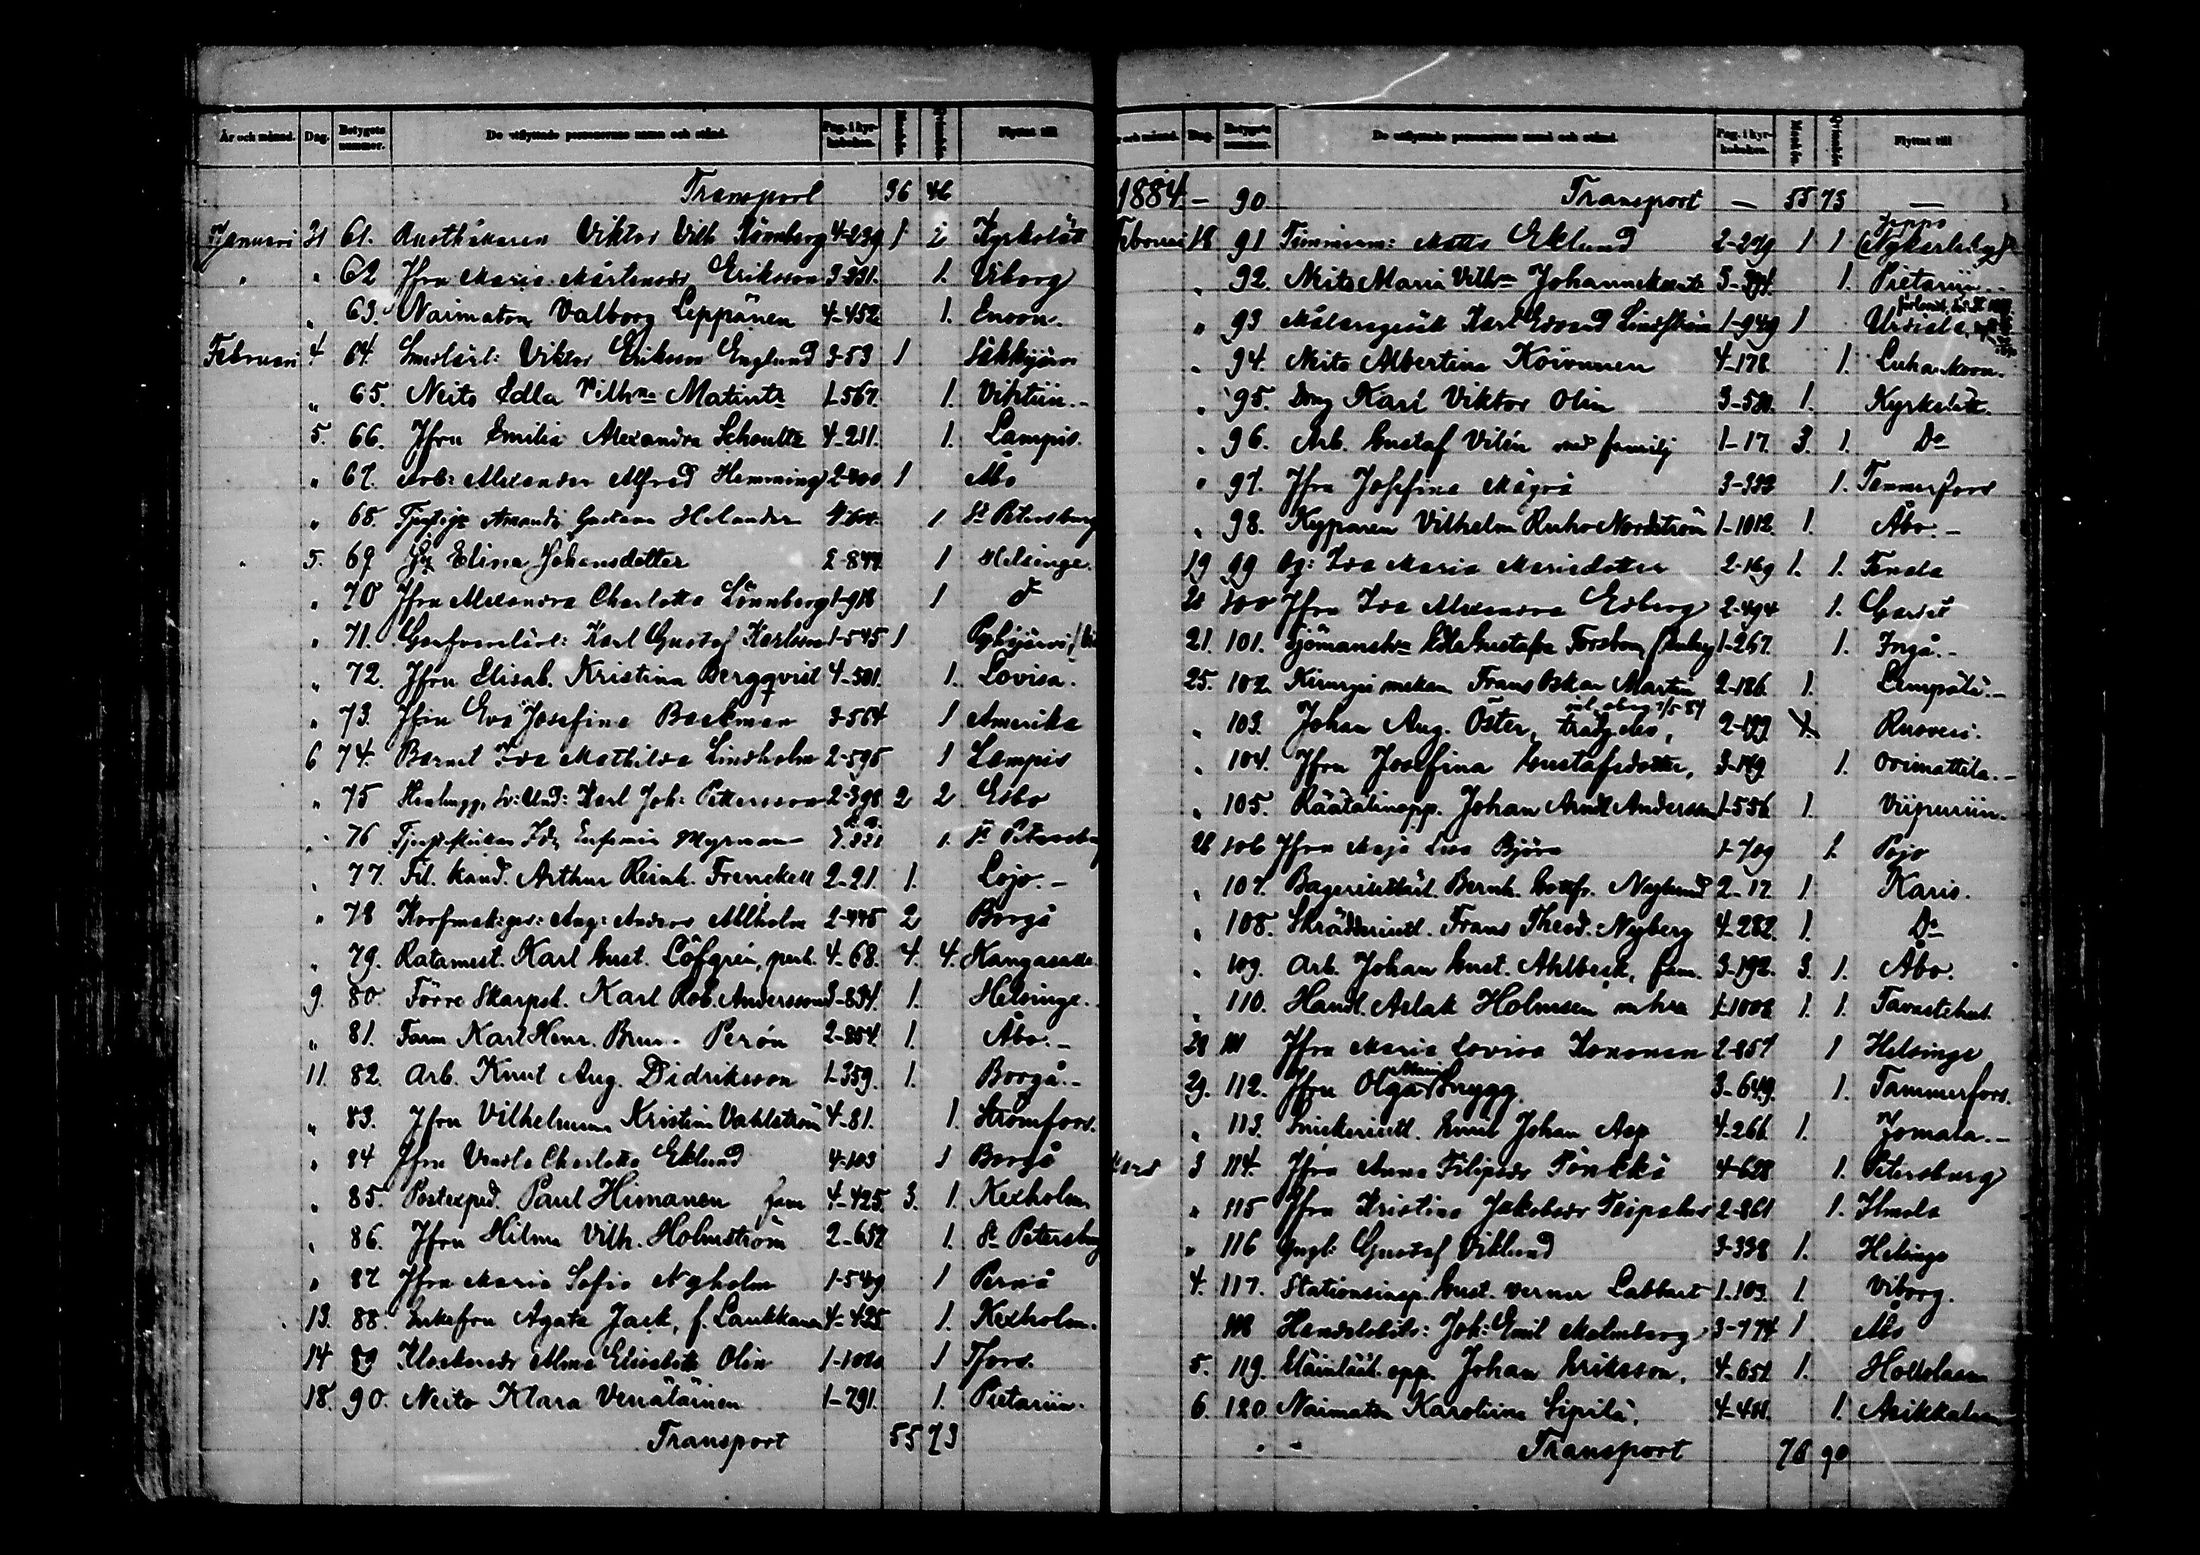 År och månad. Dag. Betygets nummer. De utflyttade personernas namn och stånd. Pag. i kyrkoboken. Mankön. Qvinnkön. Flyttat till
Transport 36 46
Januari 31 61. Viktor Vilh. Lönnberg 4-239 1 2 Kyrkslätt
" " 62 Jfru Maria Mårtensdr Eriksson 3-331. 1. Viborg
" 63. Naimaton Valborg Leppänen 4-452 1. Enoon.
Februari 4 64. Smedlärl: Viktor Eriksson Englund 3-53 1 Säkkijärvi
" 65. Neito Edla Vilhna Matintr 1-567. 1. Vihtiin.-
5. 66. Jfru Emilia Alexandra Schoultz 4-211. 1. Lampis.
" 67. Arb: Alexander Alfred Hemming 2-400 1 Åbo
" 68. Amanda Gustava Helander 1 St Petersburg
" 5. 69 Elina Johansdotter 2-844 1 Helsinge.
" 70 Jfru Alexandra Charlotta Lönnberg 1-918 1 do
" 71. Karl Gustaf Karlsson 1-545 1
" 72. Jfru Elisab. Kristina Bergqvist 4-301. 1. Lovisa.
" 73. Jfru Eva Josefina Backman 3-564 1 Amerika
6 74. Barnet Ida Mathilda Lindholm 2-595 1 Lampis
" 75 Karl Joh: Pettersson 2-398 2 2 Esbo
" 76 Ida Eufemia Myrman 1. St Petersburg
" 77. Fil. kand. Arthur Reinh. Frenckell 2-21. 1. Lojo.-
" 78 Korfmak:ges: Aug: Anders Ahlholm 2-445 2 Borgå
" 79. Ratamest. Karl Gust. Löfgrén, perh. 4-68. 4. 4. Kangasala
9. 80. Förre Skarpsk. Karl Rob. Andersson 3-834. 1. Helsinge.
" 81. Farm. Karl Henr. Brun. Perón 2-854. 1. Åbo.-
11. 82. Arb. Knut Aug. Didriksson 1-359. 1. Borgå.-
" 83. Jfru Vilhelmina Kristina Vahlström 4-81. 1. Strömfors.
" 84 Jfru Vendla Charlotta Eklund 4-103 1 Borgå
" 85. Postexped. Paul Himanen fam 4-425. 3. 1. Kexholm
" 86. Jfru Hilma Vilh. Holmström 2-652 1. St Petersburg
" 87 Jfru Maria Sofia Nyholm 1-549 1 Pernå
13. 88. Enkefru Agata Jack, f. Laukkanen 4-425 1. Kexholm.
14 89 Alma Elisabeth Olin 1 Tfors.
18. 90. Neito Klara Venäläinen 1-291. 1. Pietariin.
Transport 55 73
År och månad. Dag. Betygets nummer. De utflyttade personernas namn och stånd. Pag. i kyrkoboken. Mankön. Qvinnkön. Flyttat till
1884. - 90 Transport - 55 73 -
Jeppo
Februari 18 91 Timmerm: Matts Eklund 2-279 1 1 (Nykarleby)
" 92. Neito Maria Vilhna Johanneksentr 3-394. 1. Pietariin.-
" 93 Målaregesäll Karl Edvard Lindström 1-949 1 Urdiala
" 94. Neito Albertina Koivunen 4-178 1. Luhankoon.
" 95. Dräng Karl Viktor Olin 3-530. 1. Kyrkslätt.
" 96. Arb. Gustaf Vilén med familj 1-17. 3. 1. Do
" 97. Jfru Josefina Mägrä 3-333 1. Tammerfors
" 98. Kyparen Vilhelm Ruho Nordström 1-1012. 1. Åbo.-
19 99 Ida Maria Mariedotter 2-169 1. 1. Tenala
100 Jfru Ida Alexandra Edberg 2-494 1.
21. 101. Sjömanshu Edla Gustafva Forsbom 1-267. 1. Ingå.-
25. 102. Frans Oskar Martin 2-186 1. Lempälä.-
" 103. Johan Aug. Öster, 2-199 Rusvesi.
" 104. Jfru Josefina Gustafsdotter, 3-149. 1. Orimattila.-
" 105. Räätälinopp. Johan Arvid Andersson 1-556 1. Viipuriin.
28 106 Jfru Maja Lisa Björn 1-709 1. Pojo
" 107. Bernh. Gottfr. Nyglund 2-17. 1. Karis.
" 108. Skräddereiidl. Frans Theod. Nyberg 4-282. 1. Do
" 109. Arb. Johan Gust. Ahlbeck, fam. 3-192. 3. 1. Åbo.
" 110. Handl. Aslak Holmsen, m hu 1-1008 1. 1. Tavastehus
28 111 Jfru Maria Lovisa Kononen 2-857 1 Helsinge
29. 112. Jfru Olga Maria Snygg. 3-649. 1. Tammerfors.
" 113. Snickeriidl. Emil Johan Asp 4-266 1. Jomala.-
Mars 3 114. Jfru Anna Filipsdr Pönkkä 4-638 1. Petersburg
" 115 Jfru Kristina Jakobsdr Teipalus 2-861 1. Ilmola
" 116 Yngl: Gustaf Viklund 3-338 1. Helsinge
4. 117. Stationsinsp. Gust. Verner Labbart 1-103. 1. Viborg.
118 Joh: Emil Malmberg 3-774 1 Åbo
5. 119. opp. Johan Eriksson, 4-652 1. Hollolaan
6. 120. Naimaton Karoliina Sipilä, 1. Asikkalaan
Transport 76 90